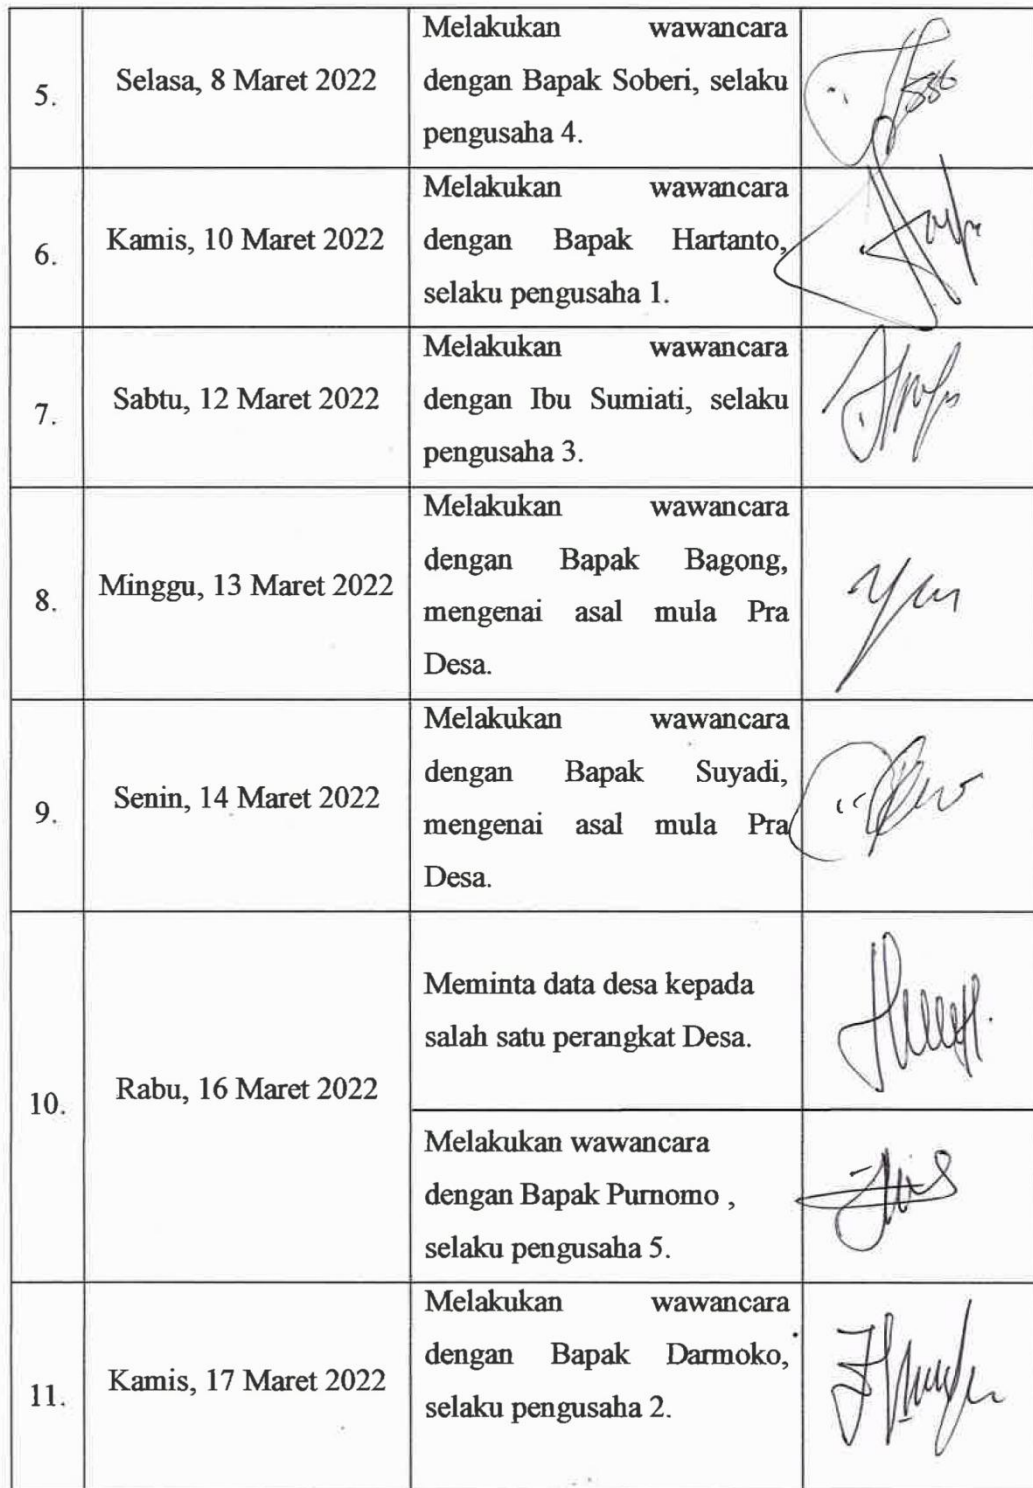 5.
Selasa, 8 Maret 2022
Melakukan wawancara
dengan Bapak Soberi, selaku
pengusaha 4.
6.
Kamis, 10 Maret 2022
Melakukan wawancara
dengan Bapak Hartanto,
selaku pengusaha 1.
7.
Sabtu, 12 Maret 2022
Melakukan wawancara
dengan Ibu Sumiati, selaku
pengusaha 3.
8.
Minggu, 13 Maret 2022
Melakukan wawancara
dengan Bapak Bagong,
mengenai asal mula Pra
Desa.
9.
Senin, 14 Maret 2022
Melakukan wawancara
dengan Bapak Suyadi,
mengenai asal mula Pra
Desa.
10.
Rabu, 16 Maret 2022
Meminta data desa kepada
salah satu perangkat Desa.
Melakukan wawancara
dengan Bapak Purnomo ,
selaku pengusaha 5.
11.
Kamis, 17 Maret 2022
Melakukan wawancara
dengan Bapak Darmoko,
selaku pengusaha 2.